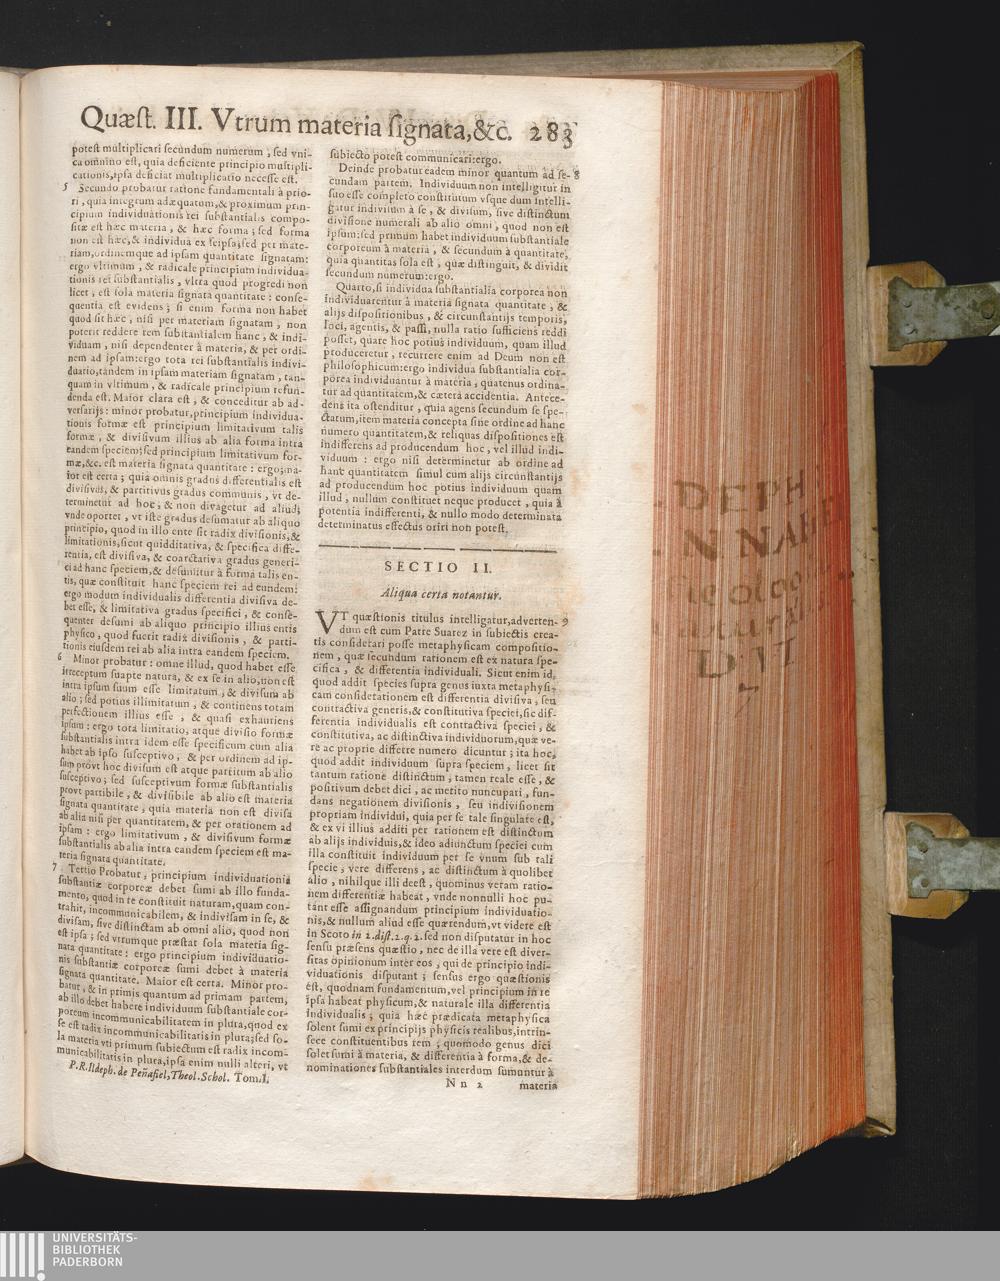 Quæst. III. Vtrum materia signata,&c. 283
potest multiplicari secundum numerum, sed vni-
ca omnino est, quia deficiente principio multipli-
cationis,ipsa deficiat multiplicatio necesse est.
5 Secundo probatur ratione fundamentali à prio-
ri, quia integrum adæquatum,& proximum prin-
cipium individuationis rei substantialis compo-
sitæ est hæc materia, & hæc forma; sed forma
non est hæc,& individua ex seipsa;sed per mate-
riam,ordinemque ad ipsam quantitate signatam:
ergo vltimum, & radicale principium individua-
tionis rei substantialis, vltra quod progredi non
licet, est sola materia signata quantitate: conse-
quentia est evidens; si enim forma non habet
quod sit hæc, nisi per materiam signatam, non
poterit reddere rem substantialem hanc, & indi-
viduam, nisi dependenter à materia, & per ordi-
nem ad ipsam:ergo tota rei substantialis indivi-
duatio,tandem in ipsam materiam signatam, tan-
quam in vltimum, & radicale principium refun-
denda est. Maior clara est, & conceditur ab ad-
versarijs: minor probatur,principium individua-
tionis formæ est principium limitativum talis
formæ, & divisivum illius ab alia forma intra
eandem speciem;sed principium limitativum for-
mæ,&c. est materia signata quantitate: ergo;ma-
ior est certa; quia omnis gradus differentialis est
divisivus, & partitivus gradus communis, vt de-
terminetur ad hoc, & non divagetur ad aliud;
vnde oportet, vt iste gradus desumatur ab aliquo
principio, quod in illo ente sit radix divisionis,&
limitationis,sicut quidditativa, & specifica diffe-
rentia, est divisiva, & coarctativa gradus generi-
ci ad hanc speciem,& desumitur à forma talis en-
tis, quæ constituit hanc speciem rei ad eundem:
ergo modum individualis differentia divisiva de-
bet esse, & limitativa gradus specifici, & conse-
quenter desumi ab aliquo principio illius entis
physico, quod fuerit radix divisionis, & parti-
tionis eiusdem rei ab alia intra eandem speciem.
6 Minor probatur: omne illud, quod habet esse
irreceptum suapte natura, & ex se in alio,non est
intra ipsum suum esse limitatum, & divisum ab
alio; sed potius illimitatum, & continens totam
perfectionem illius esse, & quasi exhauriens
ipsum: ergo tota limitatio, atque divisio formæ
substantialis intra idem esse specificum cum alia
habet ab ipso susceptivo, & per ordinem ad ip-
sum provt hoc divisum est atque partitum ab alio
susceptivo; sed susceptivum formæ substantialis
provt partibile, & divisibile ab alio est materia
signata quantitate, quia materia non est divisa
ab alia nisi per quantitatem, & per orationem ad
ipsam: ergo limitativum, & divisivum formæ
substantialis ab alia intra eandem speciem est ma-
teria signata quantitate.
7 Tertio Probatur; principium individuationis
substantiæ corporeæ debet sumi ab illo funda-
mento, quod in re constituit naturam,quam con-
trahit, incommunicabilem, & indivisam in se, &
divisam, sive distinctam ab omni alio, quod non
est ipsa; sed vtrumque præstat sola materia sig-
nata quantitate: ergo principium individuatio-
nis substantiæ corporeæ sumi debet à materia
signata quantitate. Maior est certa. Minor pro-
batur, & in primis quantum ad primam partem,
ab illo debet habere individuum substantiale cor-
poreum incommunicabilitatem in plura,quod ex
se est radix incommunicabilitatis in plura;sed so-
la materia vti primum subiectum est radix incom-
municabilitatis in plura,ipsa enim nulli alteri, vt
P.R.Ildeph. de Peñafiel,Theol.Schol. Tom.I.
subiecto potest communicari:ergo.
Deinde probatur eadem minor quantum ad se- 8
cundam partem. Individuum non intelligitur in
suo esse completo constitutum vsque dum intelli-
gatur indivisum à se, & divisum, sive distinctum
divisione numerali ab alio omni, quod non est
ipsum:sed primum habet individuum substantiale
corporeum à materia, & secundum à quantitate,
quia quantitas sola est, quæ distinguit, & dividit
secundum numerum:ergo.
Quarto,si individua substantialia corporea non
individuarentur à materia signata quantitate, &
alijs dispositionibus, & circunstantijs temporis,
loci, agentis, & passi, nulla ratio sufficiens reddi
posset, quare hoc potius individuum, quam illud
produceretur, recurrere enim ad Deum non est
philosophicum:ergo individua substantialia cor-
porea individuantur à materia, quatenus ordina-
tur ad quantitatem,& cætera accidentia. Antece-
dens ita ostenditur, quia agens secundum se spe-
ctatum,item materia concepta sine ordine ad hanc
numero quantitatem,& reliquas dispositiones est
indifferens ad producendum hoc, vel illud indi-
viduum: ergo nisi determinetur ab ordine ad
hanc quantitatem simul cum alijs circunstantijs
ad producendum hoc potius individuum quam
illud, nullum constituet neque producet, quia à
potentia indifferenti, & nullo modo determinata
determinatus effectus oriri non potest.
SECTIO II.
Aliqua certa notantur.
VT quæstionis titulus intelligatur,adverten- 9
dum est cum Patre Suarez in subiectis crea-
tis considerari posse metaphysicam compositio-
nem, quæ secundum rationem est ex natura spe-
cifica, & differentia individuali. Sicut enim id,
quod addit species supra genus iuxta metaphysi-
cam considerationem est differentia divisiva, seu
contractiva generis,& constitutiva speciei,sic dif-
ferentia individualis est contractiva speciei, &
constitutiva, ac distinctiva individuorum,quæ ve-
re ac proprie differre numero dicuntur; ita hoc,
quod addit individuum supra speciem, licet sit
tantum ratione distinctum, tamen reale esse, &
positivum debet dici, ac merito nuncupari, fun-
dans negationem divisionis, seu indivisionem
propriam individui, quia per se tale singulare est,
& ex vi illius additi per rationem est distinctum
ab alijs individuis,& ideo adiunctum speciei cum
illa constituit individuum per se vnum sub tali
specie, vere differens, ac distinctum à quolibet
alio, nihilque illi deest, quominus veram ratio-
nem differentiæ habeat, vnde nonnulli hoc pu-
tant esse assignandum principium individuatio-
nis,& nullum aliud esse quærendum,vt videre est
in Scoto in 2.dist.2.q.2.sed non disputatur in hoc
sensu præsens quæstio, nec de illa vere est diver-
sitas opinionum inter eos, qui de principio indi-
viduationis disputant; sensus ergo quæstionis
est, quodnam fundamentum,vel principium in re
ipsa habeat physicum,& naturale illa differentia
individualis; quia hæc prædicata metaphysica
solent sumi ex principijs physicis realibus,intrin-
sece constituentibus rem; quomodo genus dici
solet sumi à materia, & differentia à forma,& de-
nominationes substantiales interdum sumuntur à
Nn 2 materia
UNIVERSITÄTS-
BIBLIOTHEK
PADERBORN